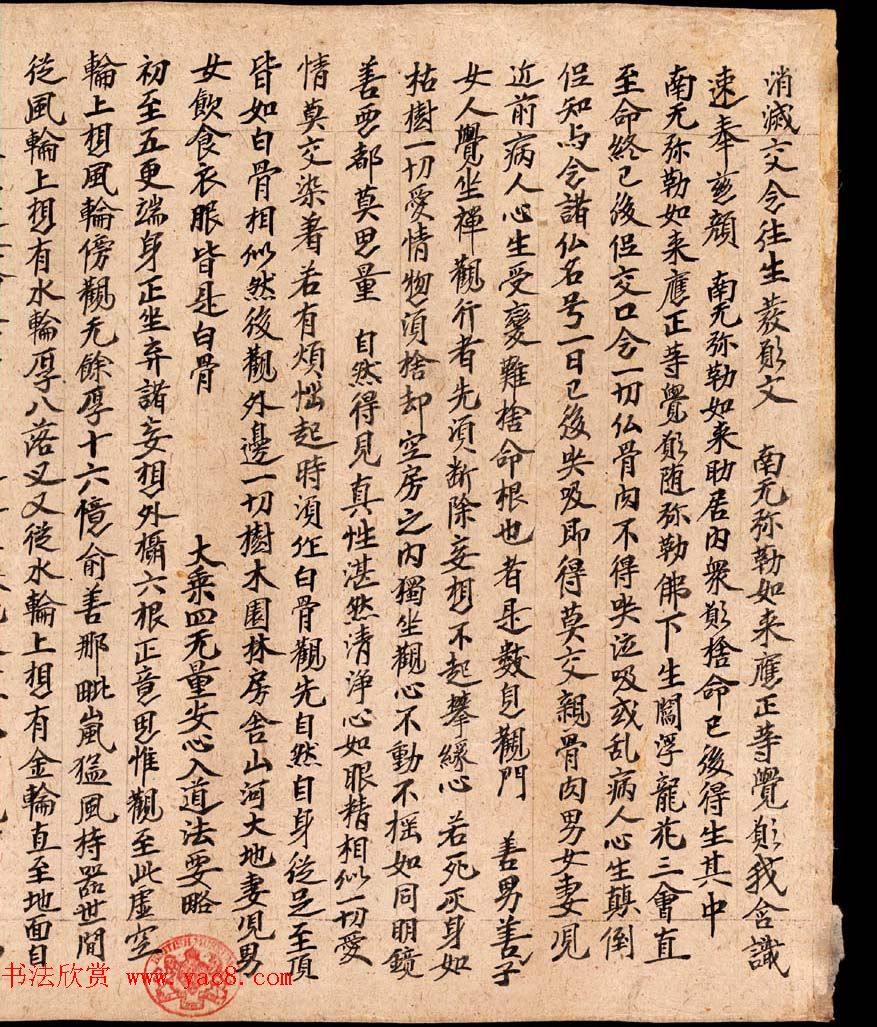 消滅交令往生發願文　南无弥勒如来應正等覺願我含識
速奉慈顔　南无弥勒如来助居內衆願捨命已後得生其中
南无弥勒如来應正等覺願随弥勒佛下生閻浮龍花三會直
至命終已後但交口令一切仏骨肉不得哭泣吸或乱病人心生顛倒
但知与念諸仏名号一日已後哭吸即得莫交親骨肉男女妻児
近前病人心生受變難捨命根也者是數息觀門　善男善子
女人覺坐禪觀行者先須断除妄想不起攀緣心　若死灰身如
枯樹一切愛情惣須捨却空房之內獨坐觀心不動不揺如同明鏡
善惡都莫思量　自然得見真性湛然清淨心如眼精相似一切愛
情莫交染著若有煩惱起時須作白骨觀先自然自身從足至頂
皆如白骨相似然後觀外邊一切樹木園林房舍山河大地妻児男
女飲食衣服皆是白骨　大乘四无量安心入道法要略
初至五更端身正坐弃諸妄想外攝六根正意思惟觀至此虛空
輪上想風輪傍觀无餘厚十六憶俞善那毗嵐猛風持器世間
從風輪上想有水輪厚八落叉又從水輪上想有金輪直至地面自
书法欣赏 www.yac8.com